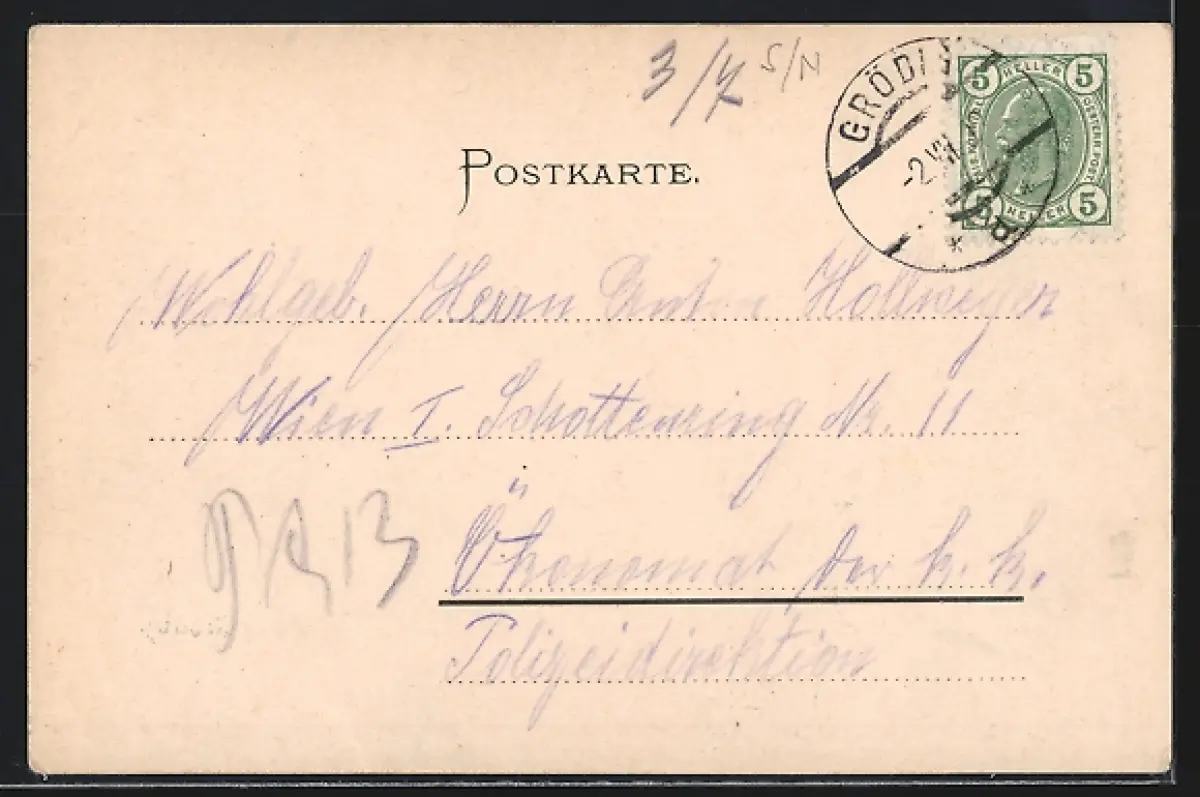 3/7 S/N
GRÖDI
-2.VII
5 HELLER 5
5 HELLER 5
POSTKARTE.
Wohlgeb. Herrn Anton Hollweger
Wien I. Schottenring Nr. 11
Ökonomat der k. k.
Polizeidirektion